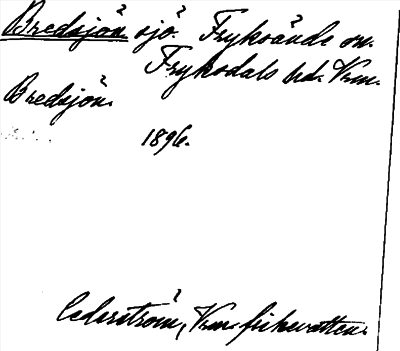 Bredsjön sjö. Fryksände sn.
Fryksdals hd. Vrm.
Bredsjön.
1896.
Cederström, Vrm. fiskevatten.